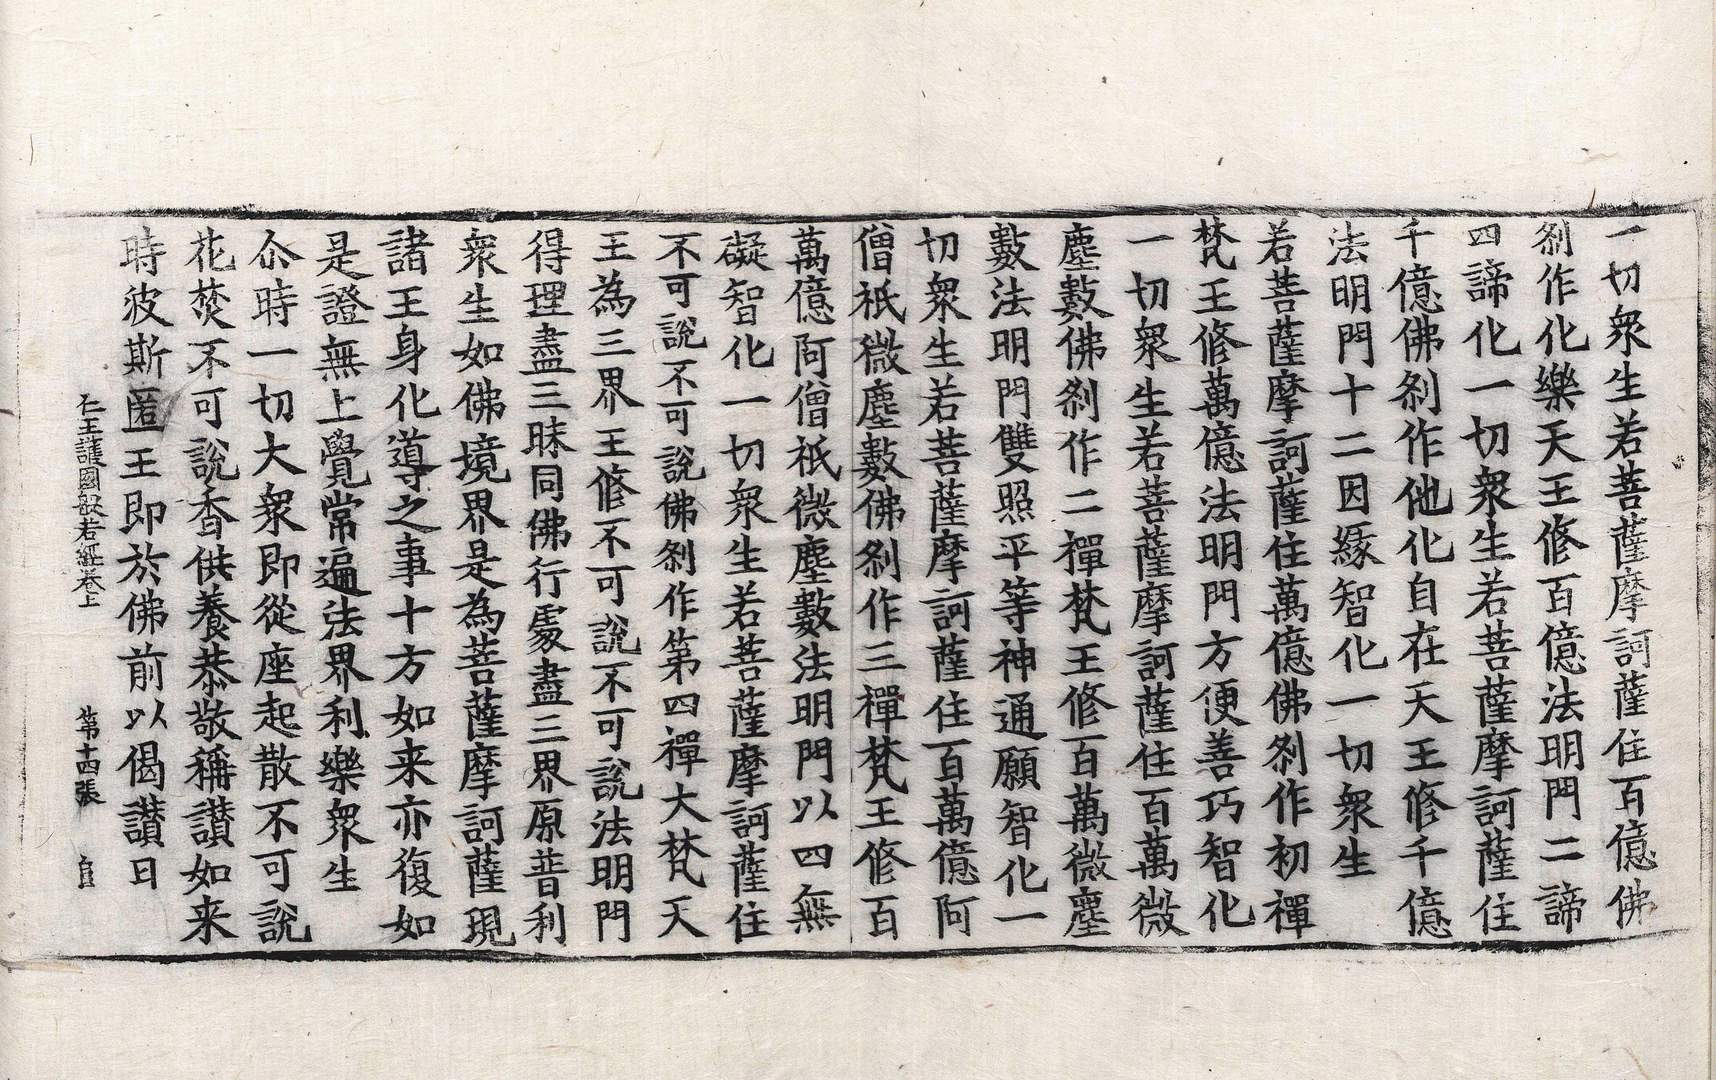 一切衆生若菩薩摩訶薩住百億佛
刹作化樂天王修百億法明門二諦
四諦化一切衆生若菩薩摩訶薩住
千億佛刹作他化自在天王修千億
法明門十二因緣智化一切衆生
若菩薩摩訶薩住萬億佛刹作初禪
梵王修萬億法明門方便善巧智化
一切衆生若菩薩摩訶薩住百萬微
塵數佛刹作二禪梵王修百萬微塵
數法明門雙照平等神通願智化一
切衆生若菩薩摩訶薩住百萬億阿
僧祇微塵數佛刹作三禪梵王修百
萬億阿僧祇微塵數法明門以四無
礙智化一切衆生若菩薩摩訶薩住
不可說不可說佛刹作第四禪大梵天
王為三界王修不可說不可說法明門
得理盡三昧同佛行處盡三界原普利
衆生如佛境界是為菩薩摩訶薩現
諸王身化導之事十方如来亦復如
是證無上覺常遍法界利樂衆生
尒時一切大衆即從座起散不可說
花焚不可說香供養恭敬稱讃如来
時波斯匿王即於佛前以偈讃曰
仁王護國般若經卷上 第十四張 自